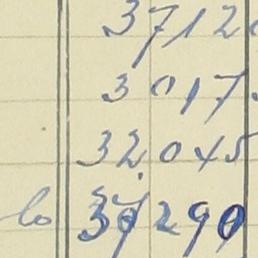 3712
3017
32045
lo 37290